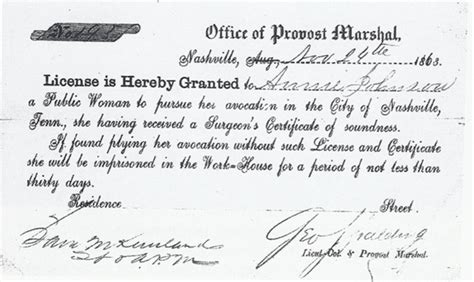 Office of Provost Marshal,
Nashville, Aug. Nov 24th 1863.
License is Hereby Granted to Annie Johnson
a Public Woman to pursue her avocation in the City of Nashville,
Tenn., she having received a Surgeon's Certificate of soundness.
If found plying her avocation without such License and Certificate
she will be imprisoned in the Work-House for a period of not less than
thirty days.
Residence Street.
Geo Spalding
Lieut-Col. & Provost Marshal.